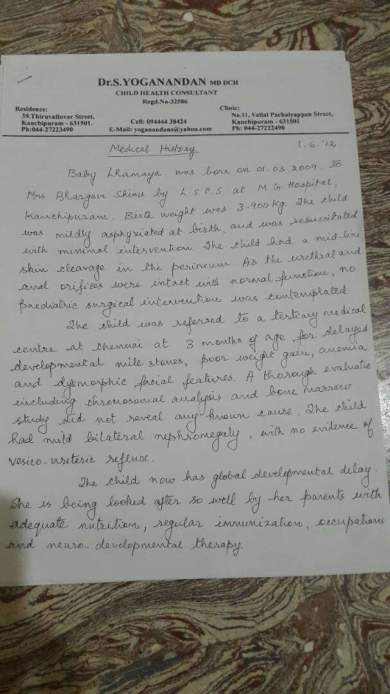 Dr.S.YOGANANDAN MD DCH
CHILD HEALTH CONSULTANT
Regd.No-32586
Residence:
39,Thiruvalluvar Street,
Kanchipuram - 631501.
Ph:044-27223490
Cell: 094444 38424
E-Mail: yoganandans@yahoo.com
Clinic:
No.11, Vallal Pachaiyappan Street,
Kanchipuram - 631501
Ph: 044-27222498
1.6.'12
Medical History
Baby Lhamaya was born on 01.03.2009 to
Mrs Bhargavi Shinu by L S C S at M.G. Hospital,
Kanchipuram. Birth weight was 3.900 kg. The child
was mildly asphyxiated at birth, and was resuscitated
with minimal intervention. The child had a mid-line
skin cleavage in the perineum. As the urethral and
anal orifices were intact with normal function, no
Paediatric surgical intervention was contemplated.
The child was referred to a tertiary medical
centre at Chennai at 3 months of age for delayed
developmental mile stones, poor weight gain, anemia
and dysmorphic facial features. A thorough evaluation
including chromosomal analysis and bone marrow
study did not reveal any known cause. The child
had mild bilateral nephromegaly, with no evidence of
vesico-ureteric reflux.
The child now has global developmental delay.
She is being looked after so well by her parents with
adequate nutrition, regular immunization, occupational
and neuro-developmental therapy.